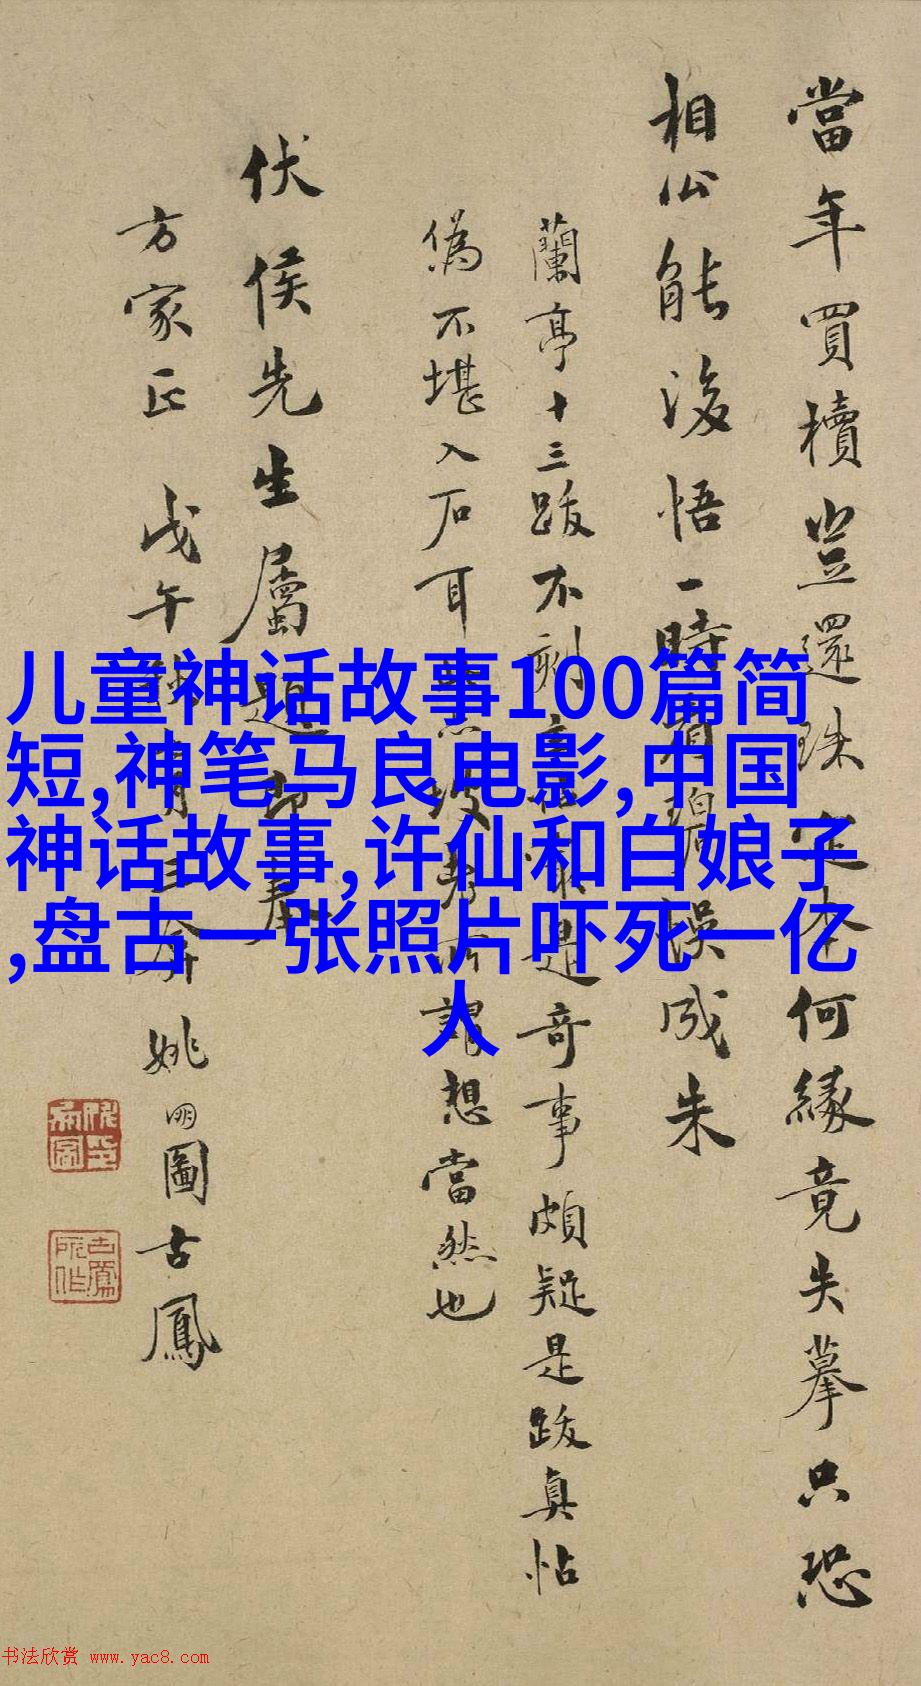 儿童神话故事100篇简
短,神笔马良电影,中国
神话故事,许仙和白娘子
,盘古一张照片吓死一亿
人
當年買櫝豈還珠定本何緣竟失摹只恐
相公能後悟一時看碧誤成朱
蘭亭十三跋不刻是奇事頗疑是跋真帖
偽不堪入石耳坡老所謂想當然也
伏侯先生屬題即奉
方家正 戊午 姚明圖古鳳
书法欣赏 www.yac8.com